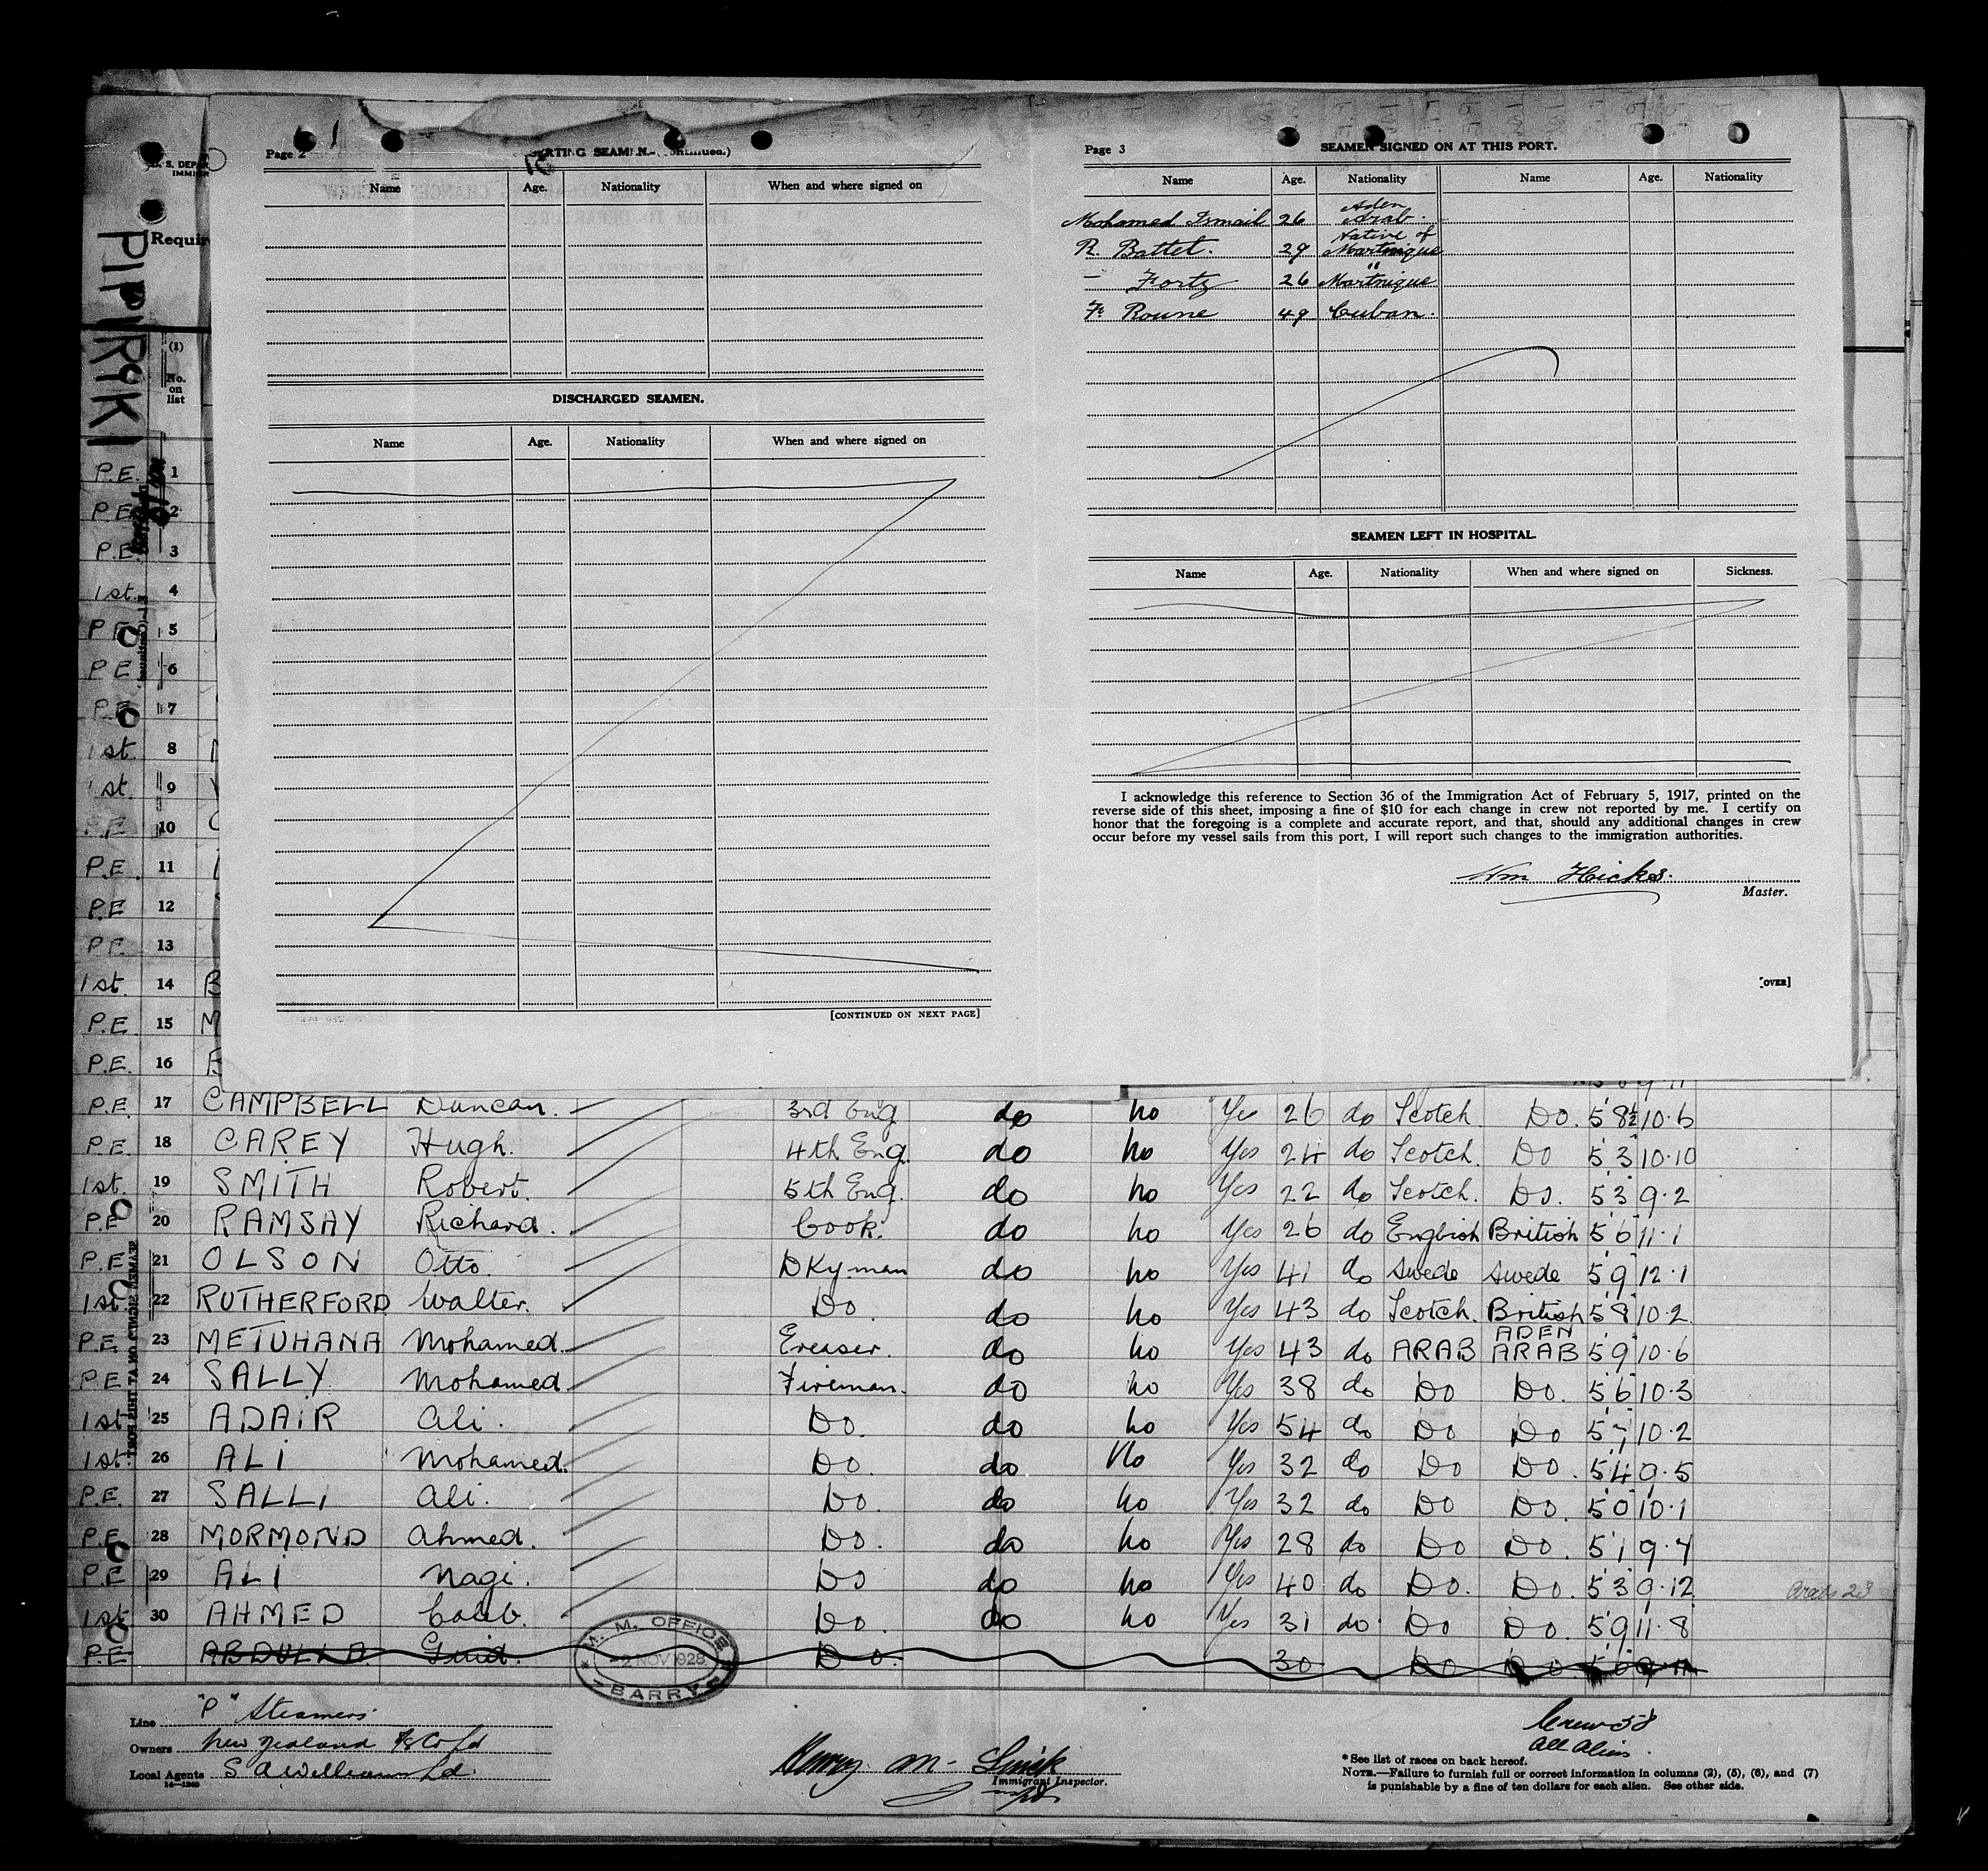 PIPIRIKI
U. S. DEPAR
IMMIGR
Requir
(1)
No.
on
list
Page 2
ERTING SEAMEN.—(Continued.)
Name Age. Nationality When and where signed on
DISCHARGED SEAMEN.
Name Age. Nationality When and where signed on
[CONTINUED ON NEXT PAGE]
Page 3
SEAMEN SIGNED ON AT THIS PORT.
Name Age. Nationality Name Age. Nationality
Mohamed Ismail 26 Aden Arab.
R. Battet. 29 Native of Martinique
— Fortz 26 " Martinique
F. Roune 49 Cuban.
SEAMEN LEFT IN HOSPITAL.
Name Age. Nationality When and where signed on Sickness.
I acknowledge this reference to Section 36 of the Immigration Act of February 5, 1917, printed on the
reverse side of this sheet, imposing a fine of $10 for each change in crew not reported by me. I certify on
honor that the foregoing is a complete and accurate report, and that, should any additional changes in crew
occur before my vessel sails from this port, I will report such changes to the immigration authorities.
Wm Hicks.
Master.
[OVER]
P.E. 1
P.E. 2
P.E. 3
1st. 4
P.E. 5
P.E. 6
P.E. 7
1st. 8
1st. 9
P.E. 10
P.E. 11
P.E. 12
P.E. 13
1st. 14 B
P.E. 15 M
P.E. 16
P.E. 17 CAMPBELL Duncan. 3rd Eng do no Yes 26 do Scotch. Do. 5'8½ 10.6
P.E. 18 CAREY Hugh. 4th Eng. do no Yes 24 do Scotch. Do 5'3" 10.10
1st. 19 SMITH Robert. 5th Eng. do no Yes 22 do Scotch. Do. 5'3" 9.2
P.E. 20 RAMSAY Richard. Cook. do no Yes 26 do English British 5'6" 11.1
P.E. 21 OLSON Otto. DKyman do no Yes 41 do Swede Swede 5'9" 12.1
1st. 22 RUTHERFORD Walter. Do do no Yes 43 do Scotch. British 5'8" 10.2
P.E. 23 METUHANA Mohamed. Greaser. do no Yes 43 do ARAB ADEN ARAB 5'9" 10.6
P.E. 24 SALLY Mohamed Fireman. do no Yes 38 do Do Do. 5'6" 10.3
1st 25 ADAIR Ali. Do. do no Yes 54 do Do Do 5'7" 10.2
1st. 26 ALI Mohamed. Do. do No Yes 32 do Do Do. 5'4" 9.5
P.E. 27 SALLI Ali. Do. do no Yes 32 do Do Do. 5'0" 10.1
P.E. 28 MORMOND Ahmed. Do. do no Yes 28 do Do Do. 5'1" 9.4
P.E 29 ALI Nagi. Do do no Yes 40 do Do. Do. 5'3" 9.12
1st 30 AHMED Do. do no Yes 31 do Do Do. 5'9" 11.8
P.E ABDULLA Do. 30 Do Do.
Arabs 23
M. M. OFFICE
2 NOV 1928
BARRY
SEAMEN SIGNED ON AT THIS PORT
Line "P" Steamers
Owners New Zealand S/S Co Ld
Local Agents S A Williams Ld.
14—1240
Henry M.
Immigrant Inspector.
Crew 58
All Aliens.
* See list of races on back hereof.
NOTE.—Failure to furnish full or correct information in columns (2), (5), (6), and (7)
is punishable by a fine of ten dollars for each alien. See other side.